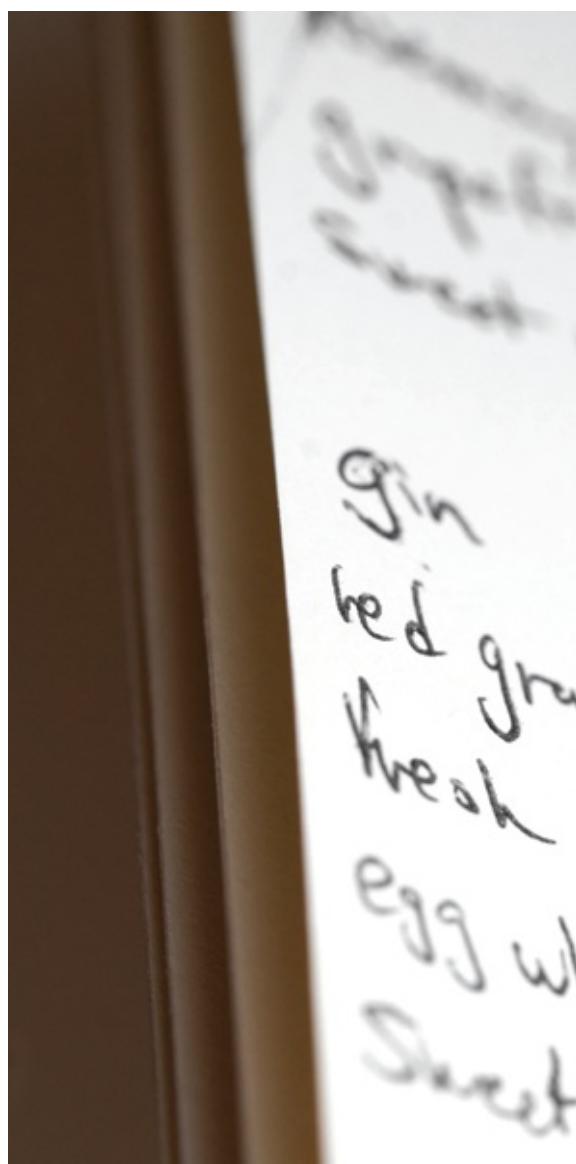 Sweet
gin
red gra
fresh
egg wh
Sweet